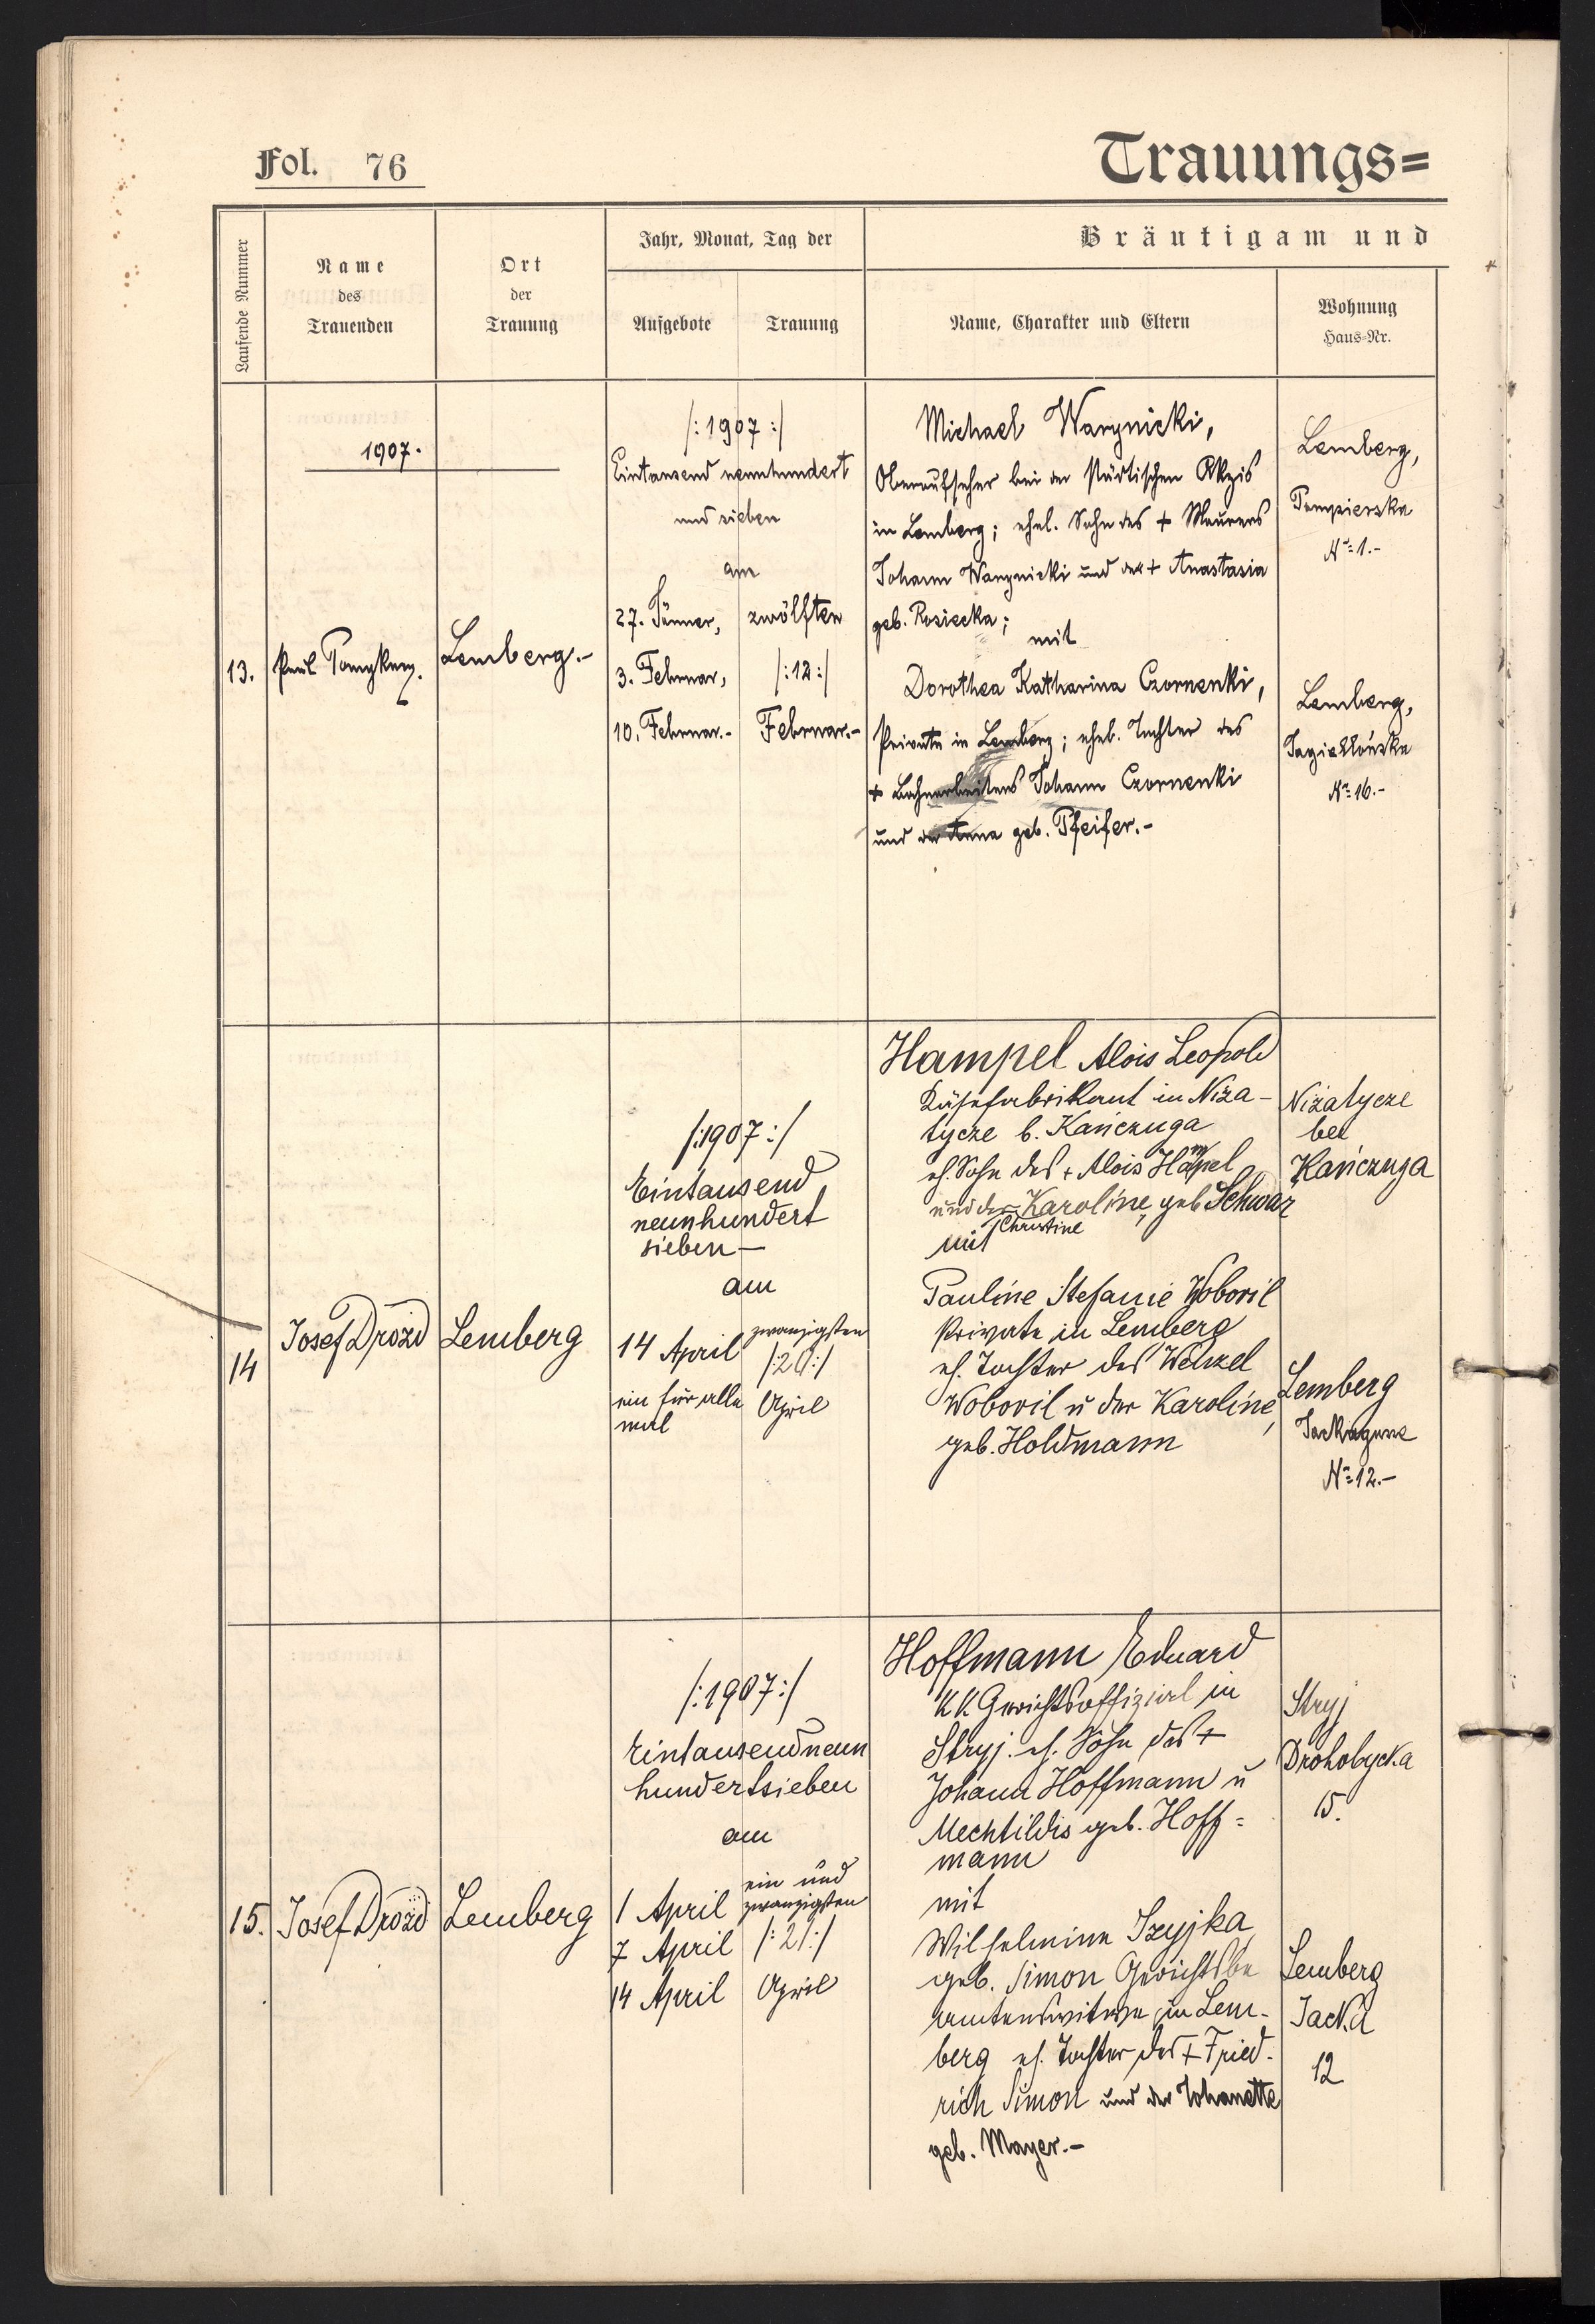 Fol. 76
Trauungs=
Laufende Nummer
Name
des
Trauenden
Ort
der
Trauung
Jahr, Monat, Tag der
Aufgebote
Trauung
Bräutigam und
Name, Charakter und Eltern
Wohnung
Haus-Nr.
1907.
13.
Paul
Lemberg.-
/:1907:/
Eintausend neunhundert
und sieben
am
27. Jänner,
3. Februar,
10. Februar.-
zwölften
/:12:/
Februar.-
Michael Warynicki,
Oberaufseher bei der städtischen Akzis
in Lemberg; ehel. Sohn des + Maurers
Johann Warynicki und der + Anastasia
geb. Rosiecka;
mit
Dorothea Katharina Czornenki,
Private in Lemberg; ehel. Tochter des
+ Bahnarbeiters Johann Czornenki
und der Anna geb. Pfeifer.-
Lemberg,
Nr: 1.-
Lemberg,
Jagiellońska
Nr: 16.-
14
Josef Drozd
Lemberg
/:1907:/
Eintausend
neunhundert
sieben—
am
14 April
ein für alle
mal
zwanzigsten
/:20:/
April
Hampel Alois Leopold
Käsefabrikant in Niża-
tycze b. Kańczuga
eh. Sohn des + Alois Hampel
und der Karoline, geb Schwarz
Christine
mit
Pauline Stefanie Woboril
Private in Lemberg
eh. Tochter des Wenzel
Woboril u der Karoline,
geb. Holdmann
Niżatycze
bei
Kańczuga
Lemberg
Nr: 12.-
15.
Josef Drozd
Lemberg
/:1907:/
Eintausendneun
hundertsieben
am
1 April
7 April
14 April
ein und
zwanzigsten
/:21:/
April
Hoffmann Eduard
KK. Gerichtsoffizial in
Stryj. eh. Sohn des +
Johann Hoffmann u
Mechtildis geb. Hoff=
mann
mit
Wilhelmine Szyjka
geb. Simon Gerichtsbe
amtenswitwe in Lem-
berg eh. Tochter des + Fried-
rich Simon und der Johanette
geb. Mayer.-
Stryj
Drohobycka
15.
Lemberg
Jacka
12